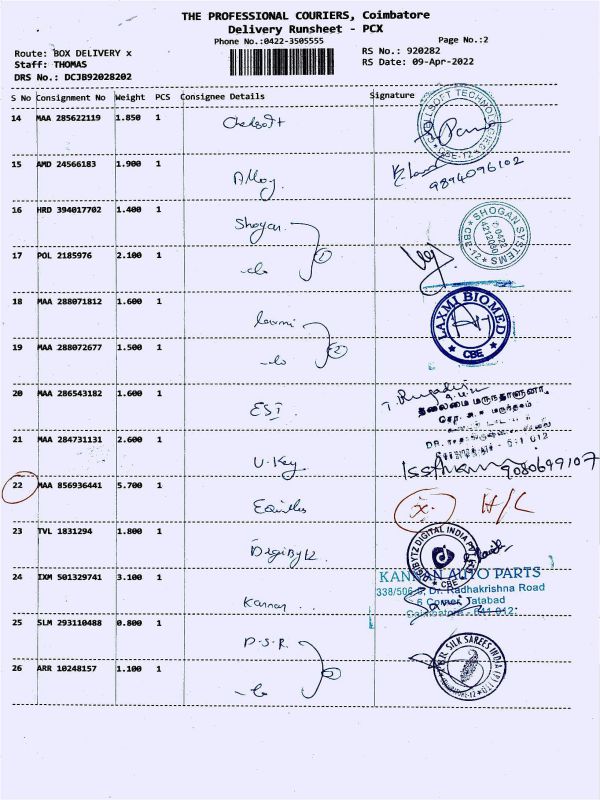 THE PROFESSIONAL COURIERS, Coimbatore
Delivery Runsheet - PCX
Phone No.:0422-3505555
Page No.:2
Route: BOX DELIVERY x
RS No.: 920282
Staff: THOMAS
RS Date: 09-Apr-2022
DRS No.: DCJB92028202
S No Consignment No Weight PCS Consignee Details Signature
14 MAA 285622119 1.850 1
TECHNOLOGIES
CBE-12
15 AMD 24566183 1.900 1 Alloy
9894096102
16 HRD 394017702 1.400 1 Shogan
SHOGAN SYSTEMS
CBE-12
17 POL 2185976 2.100 1 -do
1
18 MAA 288071812 1.600 1 laxmi
LAXMI BIOMED
CBE
19 MAA 288072677 1.500 1 -do
2
20 MAA 286543182 1.600 1 EST
21 MAA 284731131 2.600 1 U-Key
9080699107
22 MAA 856936441 5.700 1
x H/C
23 TVL 1831294 1.800 1 Digibytz
DIGIBYTZ DIGITAL INDIA PVT LTD
CBE
24 IXM 501329741 3.100 1 Kannan
KANNAN AUTO PARTS
338/506-8, Dr. Radhakrishna Road
Tatabad
Coimbatore - 641 012
25 SLM 293110488 0.800 1 P.S.R.
26 ARR 10248157 1.100 1 -do
SILK SAREES INDIA (P) LTD